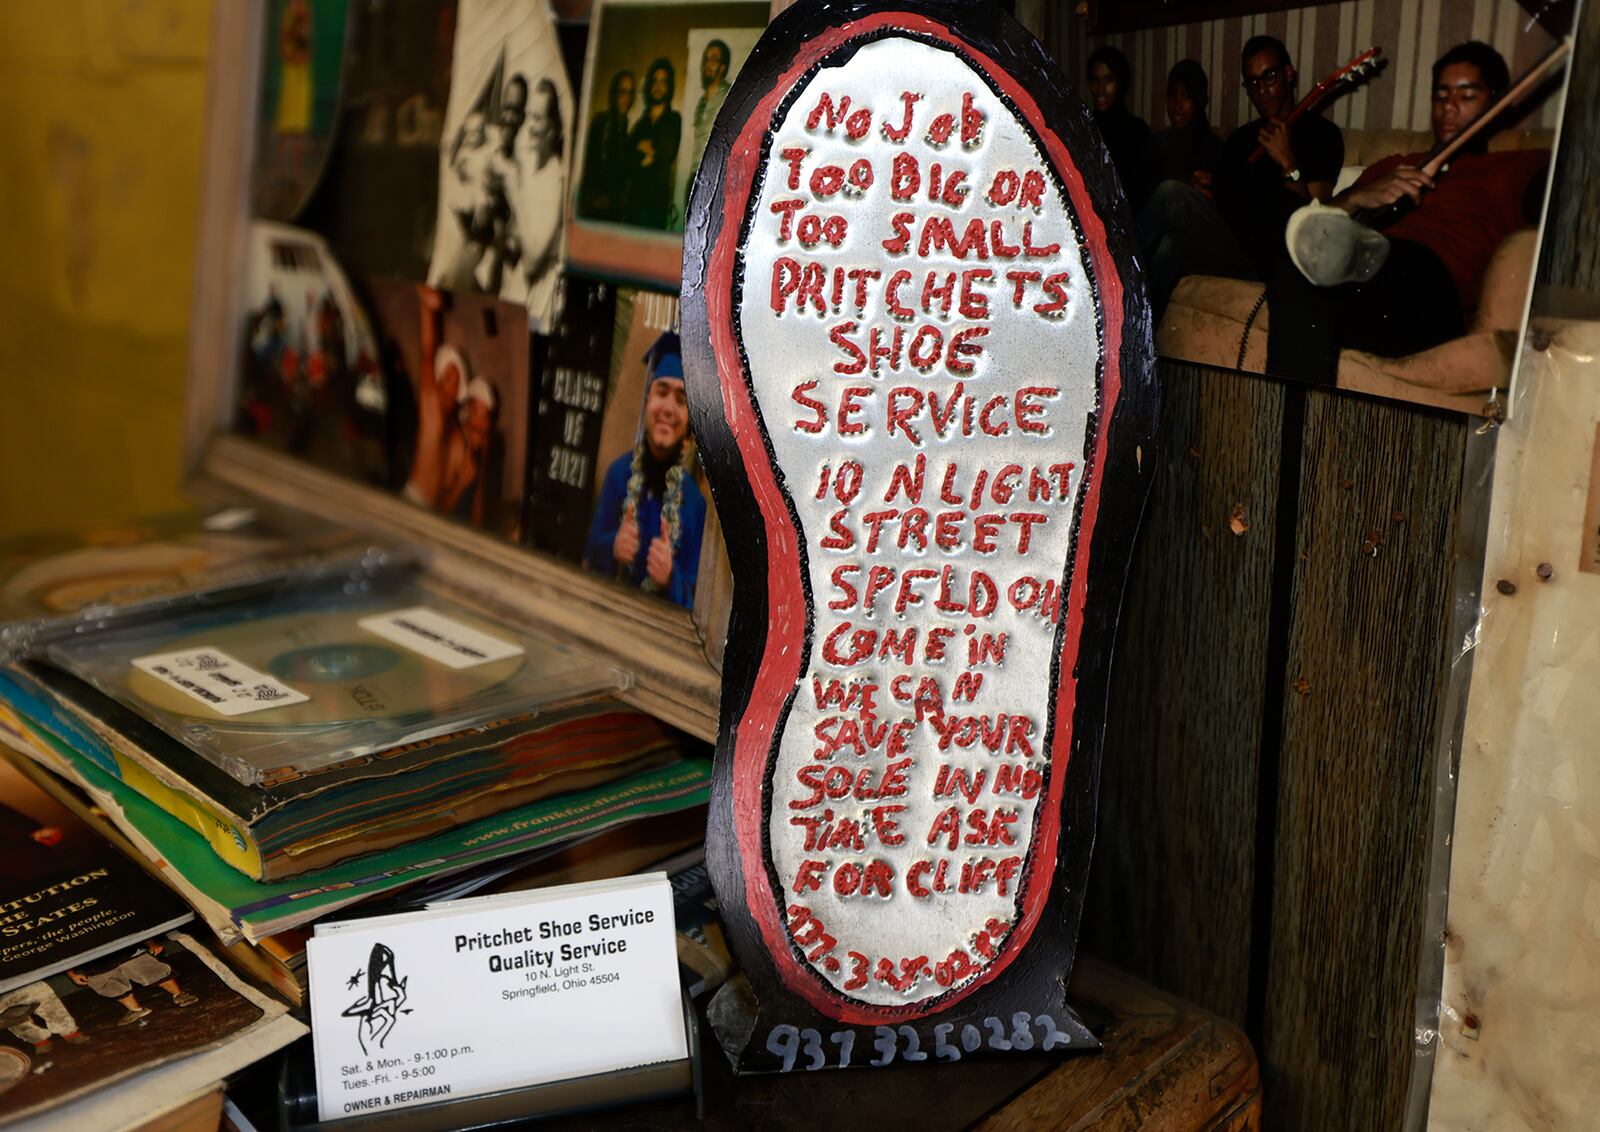 No Job
Too BIG OR
Too SMALL
PRITCHETS
SHOE
SERVICE
10 N LIGhT
STREET
SPFLD OH
COME iN
WE CAN
SAVE YOUR
SOLE IN NO
TimE ASK
FOR CLIFF
9373250282
Pritchet Shoe Service
Quality Service
10 N. Light St.
Springfield, Ohio 45504
Sat. & Mon. - 9-1:00 p.m.
Tues.-Fri. - 9-5:00
OWNER & REPAIRMAN
CLASS
OF
2021
www.frankfordleather.com
STATES
the people,
George Washington